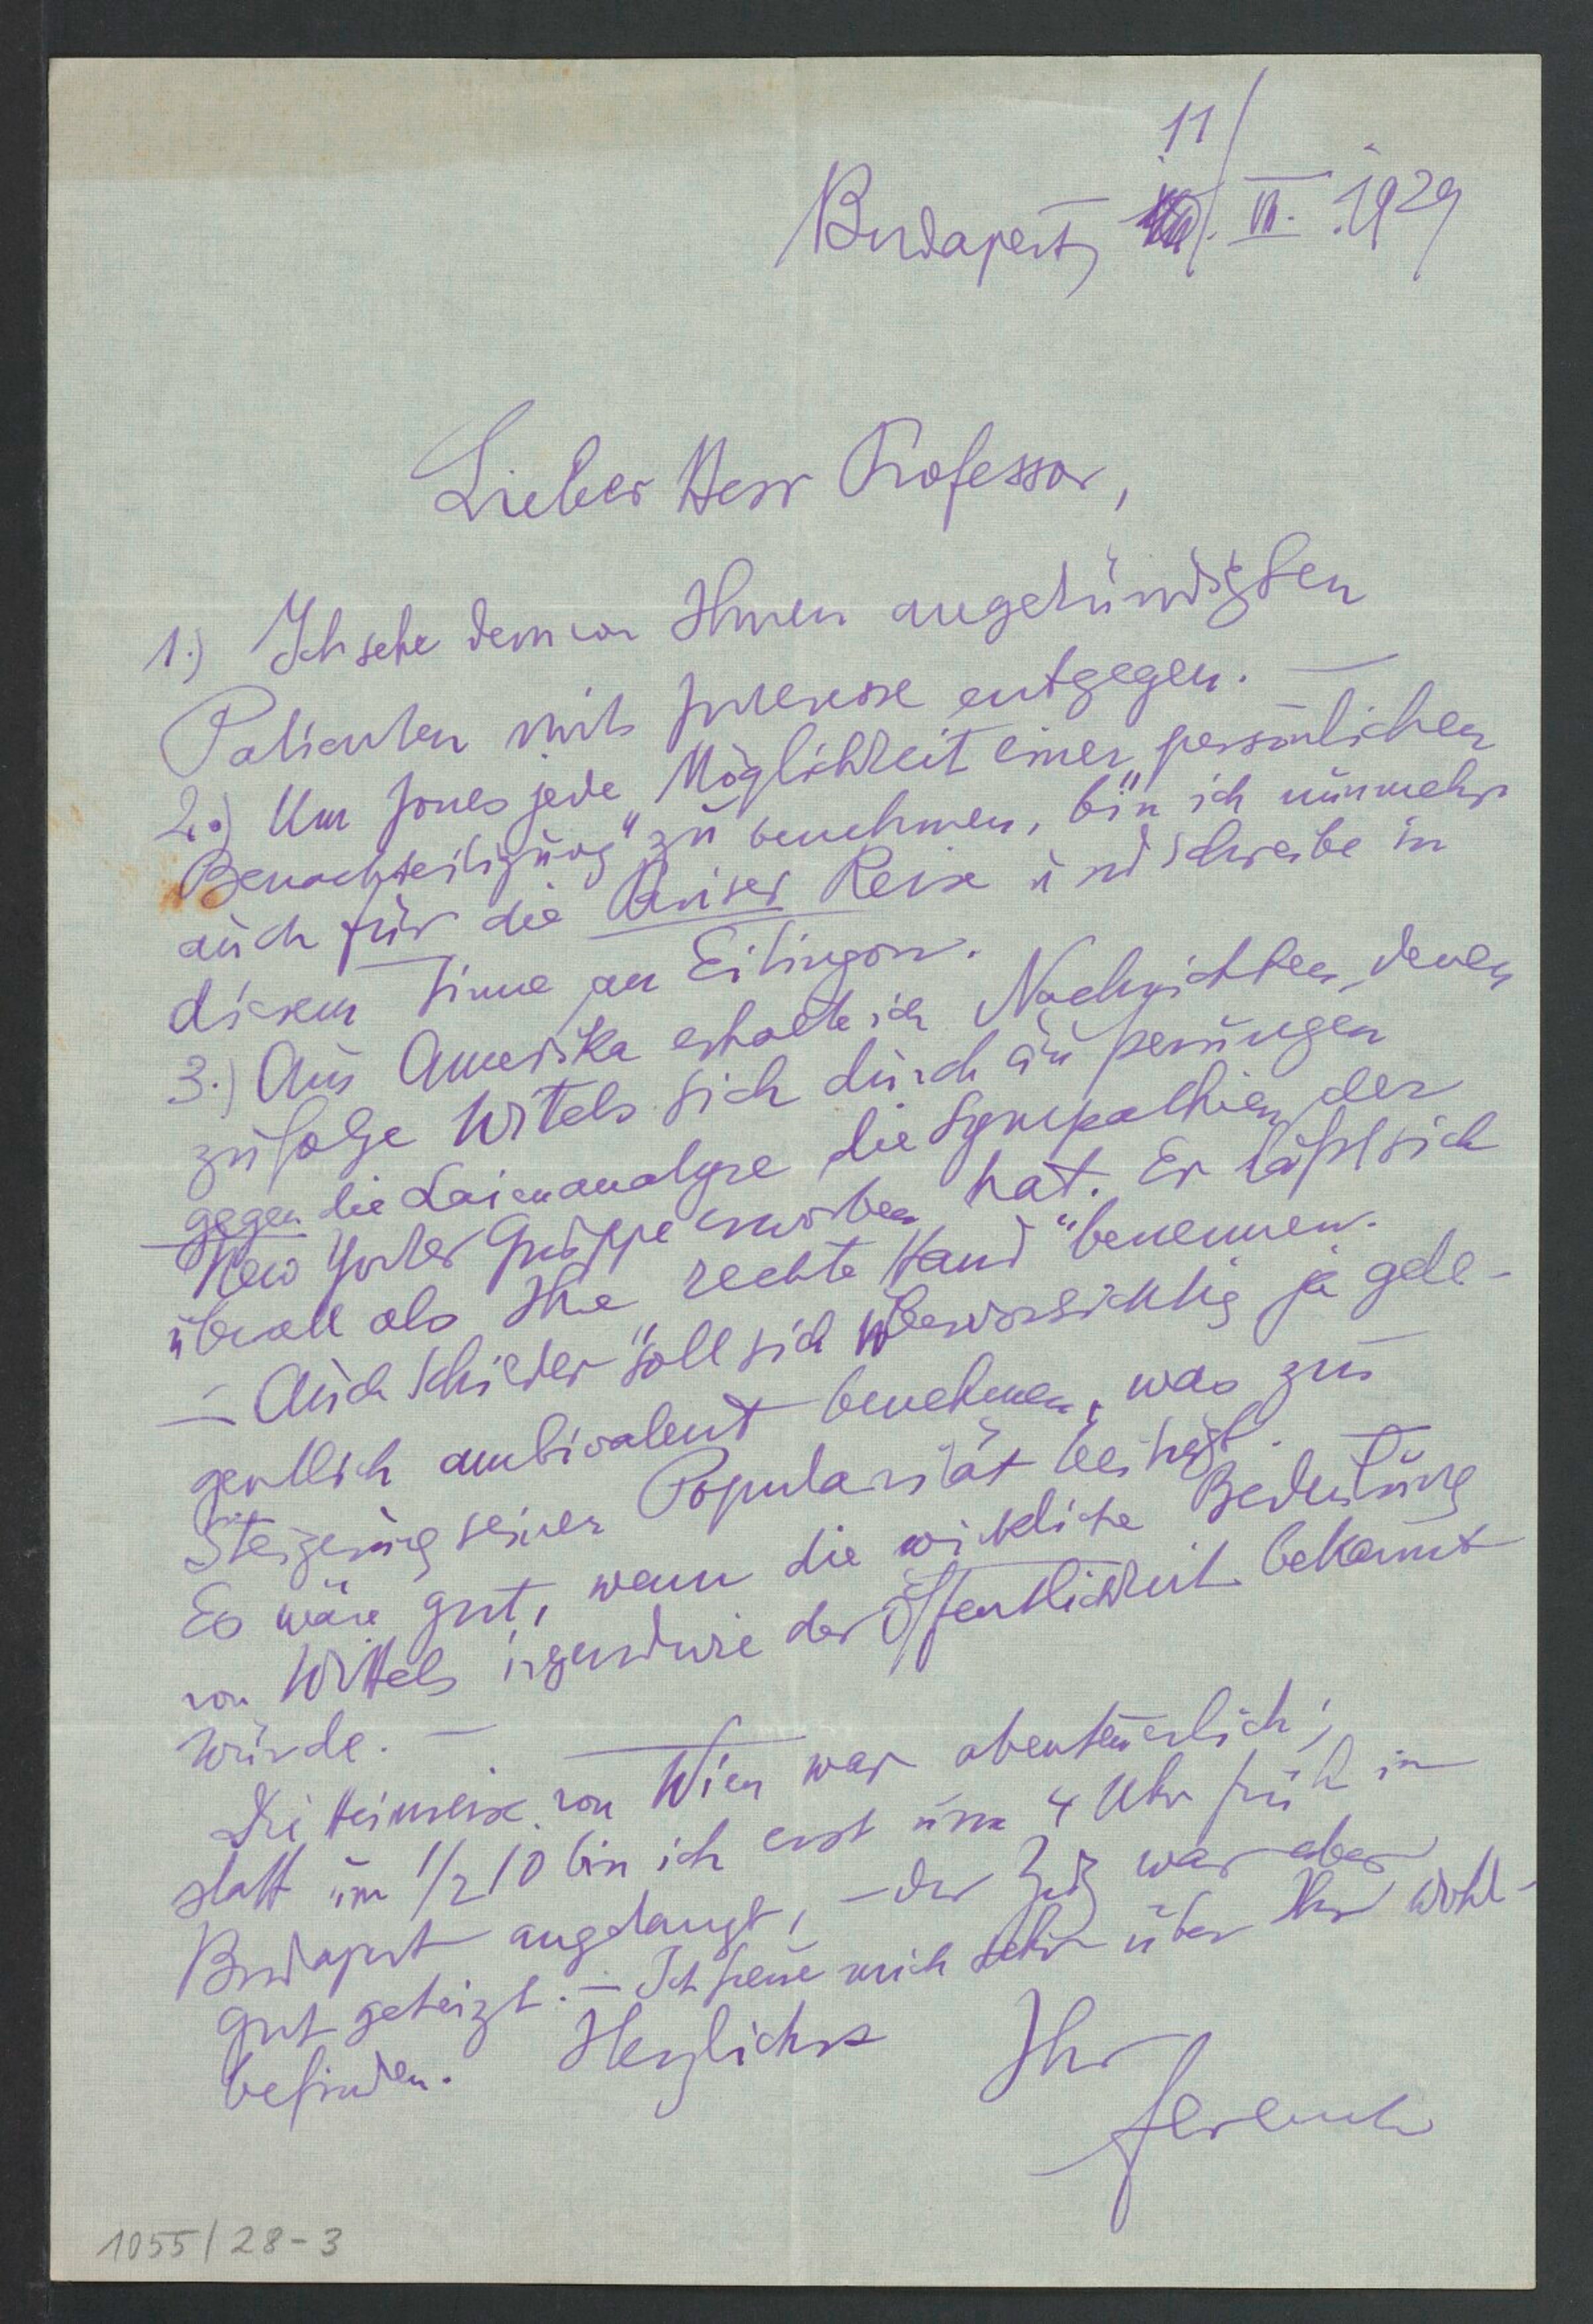 11/
Budapest, II. 1929
Lieber Herr Professor,
1.) Ich sehe dem von Ihnen angekündigten
Patienten mit Interesse entgegen. —
2.) Um Jones jede „Möglichkeit einer persönlichen
Benachteiligung" zu benehmen, bin ich nunmehr
auch für die Pariser Reise und schreibe in
diesem Sinne an Eitingon.
3.) Aus Amerika erhalte ich Nachrichten, denen
zufolge Wittels sich durch äußerungen
gegen die Laienanalyse die Sympathien der
New Yorker Gruppe erworben hat. Er läßt sich
überall als Ihre „rechte Hand" benennen.
— Auch Schilder soll sich unvorsichtig ja gele-
gentlich ambivalent benehmen, was zur
Steigerung seiner Popularität beiträgt. —
Es wäre gut, wenn die wirkliche Bedeutung
von Wittels irgendwie der Öffentlichkeit bekannt
würde. —
Die Heimreise von Wien war abenteuerlich;
statt um 1/2 10 bin ich erst um 4 Uhr früh in
Budapest angelangt, – der Zug war aber
gut geheizt. — Ich freue mich sehr über Ihr Wohl-
befinden. Herzlichst Ihr
Ferenczi
1055/28-3